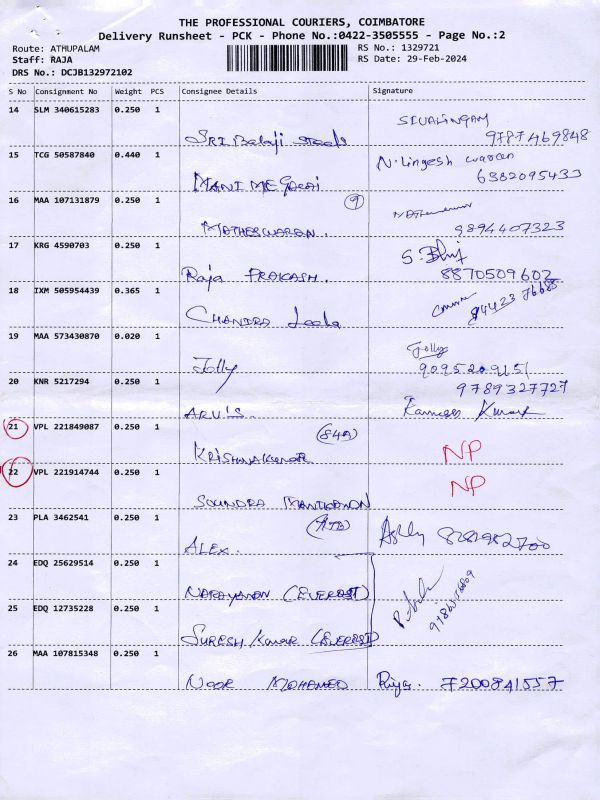 THE PROFESSIONAL COURIERS, COIMBATORE
Delivery Runsheet - PCK - Phone No.:0422-3505555 - Page No.:2
Route: ATHUPALAM
Staff: RAJA
DRS No.: DCJB132972102
RS No.: 1329721
RS Date: 29-Feb-2024
S No Consignment No Weight PCS Consignee Details Signature
14 SLM 340615283 0.250 1
SRI Balaji steels
SIVALINGAM
9787469848
15 TCG 50587840 0.440 1
MANI MEGALAI
N. Lingesh waran
6382095433
16 MAA 107131879 0.250 1
9
MATHESWARAN.
9894407323
17 KRG 4590703 0.250 1
Raja PRAKASH.
S.
8870509602
18 IXM 505954439 0.365 1
CHANDRA Leela
19 MAA 573430870 0.020 1
Jolly
Jolly
20 KNR 5217294 0.250 1
ARU'S.
9789327727
Kumar
21 VPL 221849087 0.250 1
KRISHNAKUMAR
NP
22 VPL 221914744 0.250 1
SOUNDRA MANIKANDAN
NP
23 PLA 3462541 0.250 1
ALEX.
24 EDQ 25629514 0.250 1
NARAYANAN (EVEREST)
25 EDQ 12735228 0.250 1
SURESH KUMAR (EVEREST)
26 MAA 107815348 0.250 1
NOOR MOHAMED
Riya. 7200841557